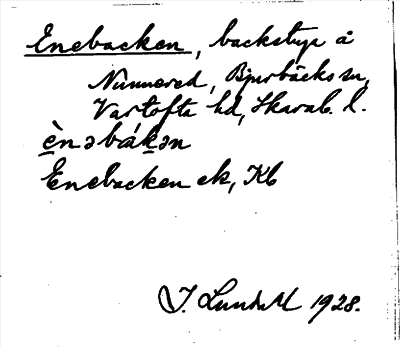 Enebacken, backstuga å
Nunnered, Bjurbäcks sn,
Vartofta hd, Skarab. l.
ènəbákən
Enebacken ek, Kb
J. Lundahl 1928.